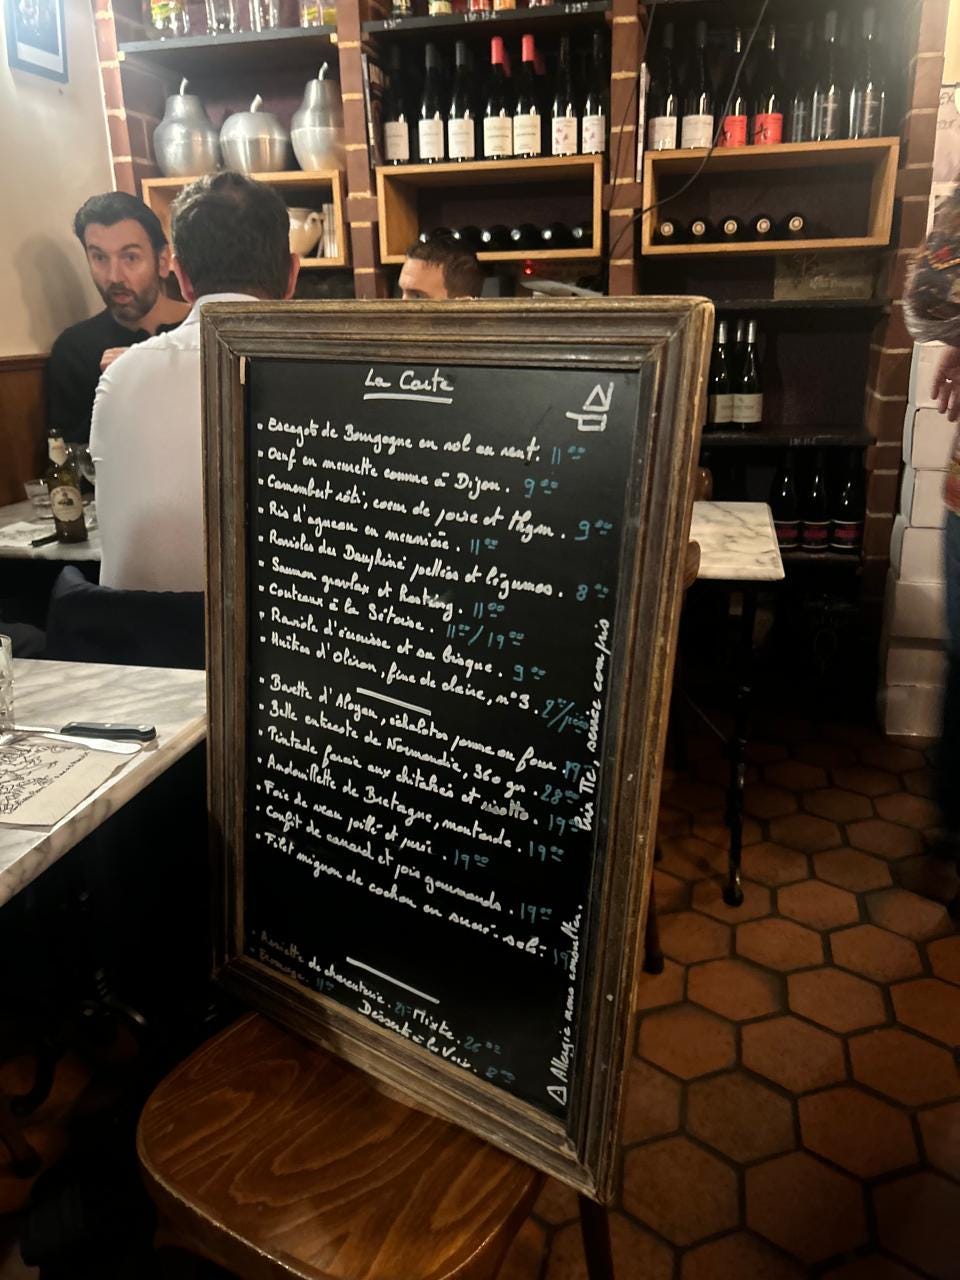 La Carte
• Escargots de Bourgogne en vol au vent. 11 00
• Oeuf en meurette comme à Dijon. 9 00
• Camembert rôti, coeur de poire et thym. 9 00
• Ris d'agneau en meunière. 11 00
• Ravioles des Dauphiné poêlées et légumes. 8 00
• Saumon gravlax et
• Couteaux à la Sétoise. 11 00/19 00
• Raviole d'écrevisse et sa bisque. 9 00
• Huîtres d'Oléron, fine de claire, n°3. 2/pièce
• Bavette d'Aloyau, échalotes pomme au four. 19
• Belle entrecote de Normandie, 360 gr. 28 00
• Pintade farcie aux shitakés et risotto. 19
• Andouillette de Bretagne, moutarde. 19 00
• Foie de veau poêlé et purée. 19 00
• Confit de canard et pois gourmands. 19 00
• Filet mignon de cochon en sucré-salé. 19
• Assiette de charcuterie. Mixte. 26 00
• Fromage. 11 00
Desserts à la Voix. 8 00
Prix TTC, service compris
Allergie nous consulter.